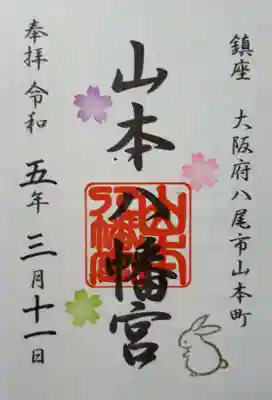 鎮座 大阪府八尾市山本町
山本八幡宮
奉拝 令和五年三月十一日